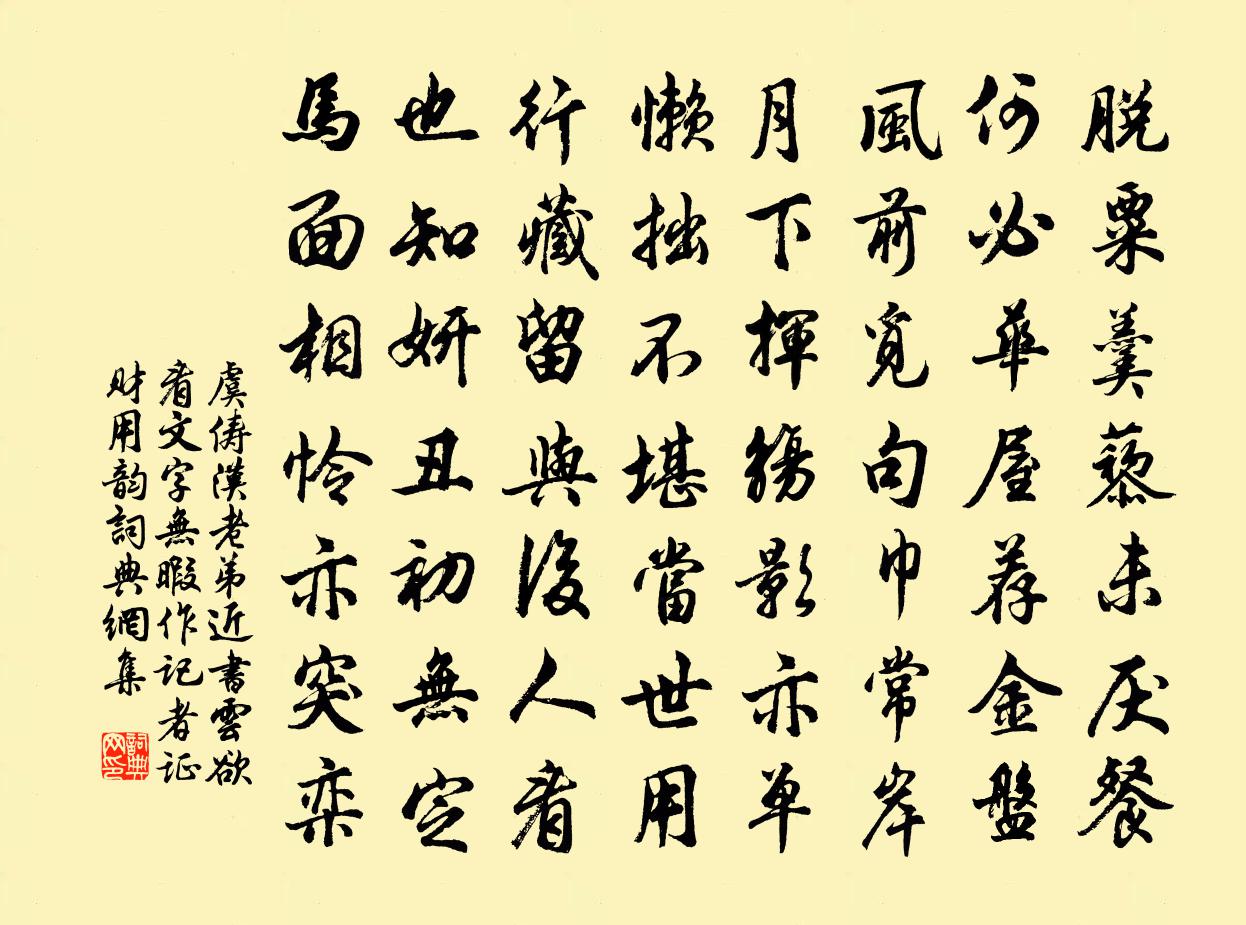 脱粟羹藜未厌餐
何必華屋荐金盤
風前覓句巾常岸
月下揮觴影亦单
懒拙不堪當世用
行藏留與後人看
也知妍丑初無定
馬面相怜亦突栾
虞俦漢老弟近書雲欲
看文字無暇作记者证
财用韵詞典網集
詞典网印